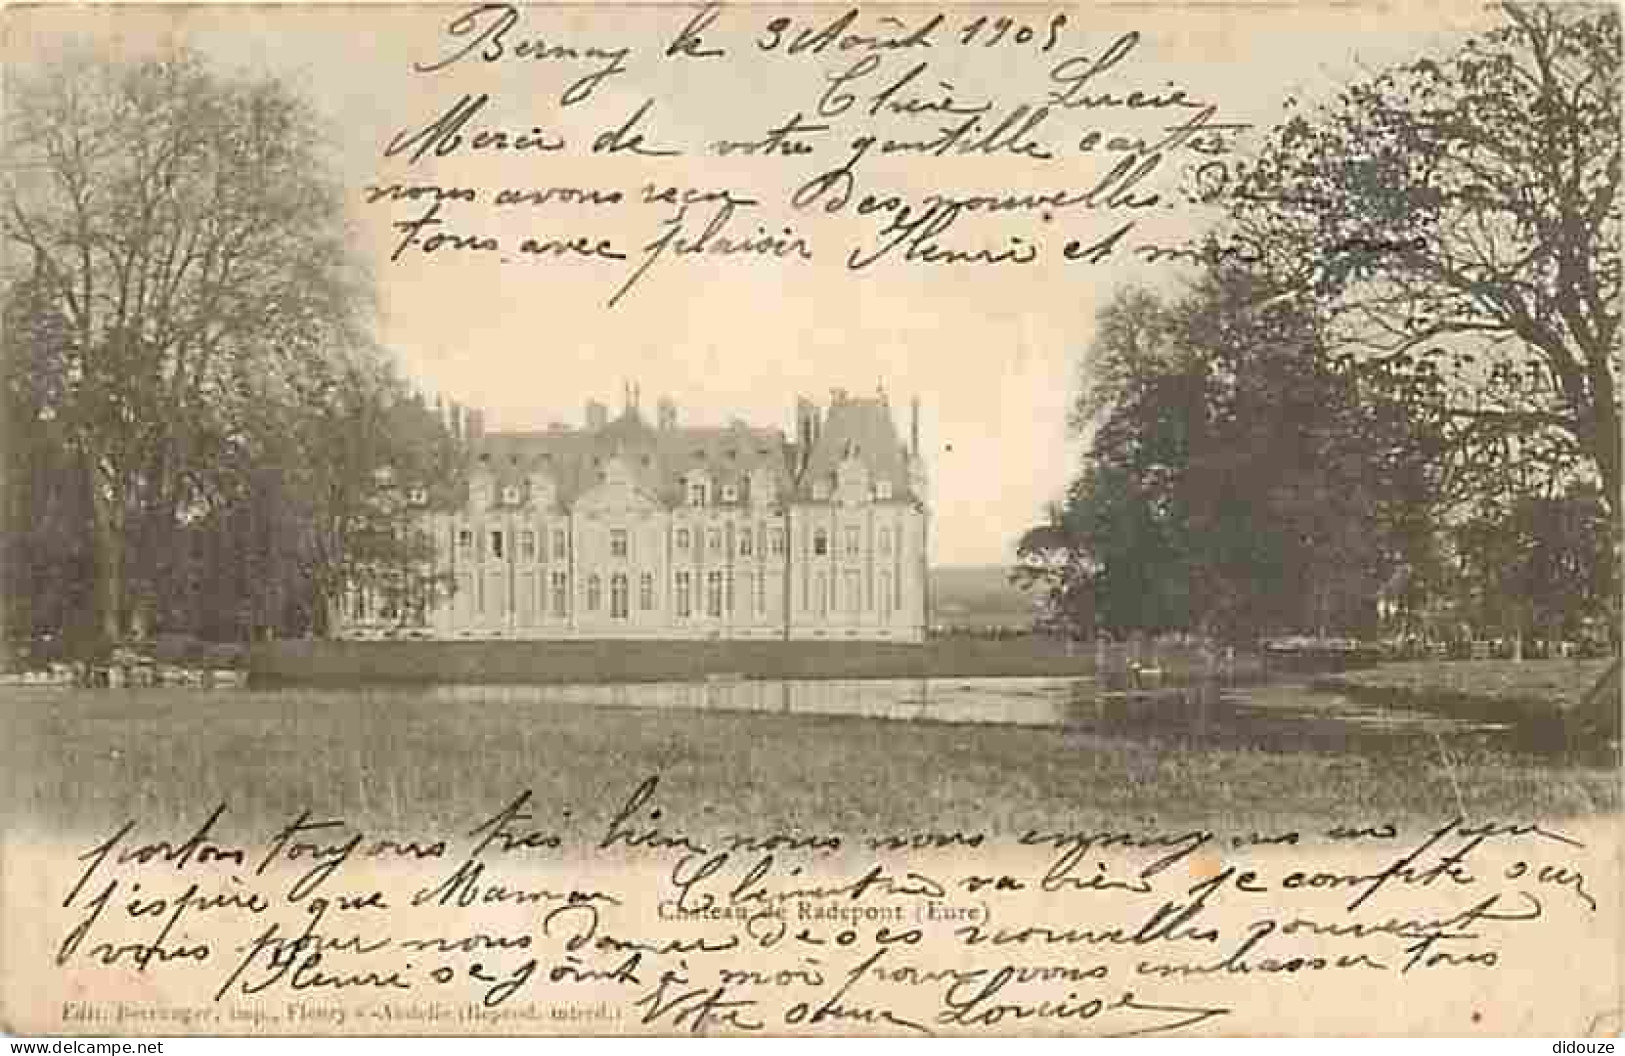 Bernay le 3 Août 1905
Chère Lucie
Merci de votre gentille carte
nous avons reçu des nouvelles de
tous avec plaisir Henri et moi nous
portons toujours très bien nous nous ennuyons un peu
j'espère que Maman Clémentine va bien je compte sur
vous pour nous donner de ses nouvelles souvent
Henri se joint à moi pour vous embrasser tous
Votre sœur Louise
Château de Radepont (Eure)
Edit. Berranger, imp., Fleury-s-Andelle (Reprod. interd.)
didouze